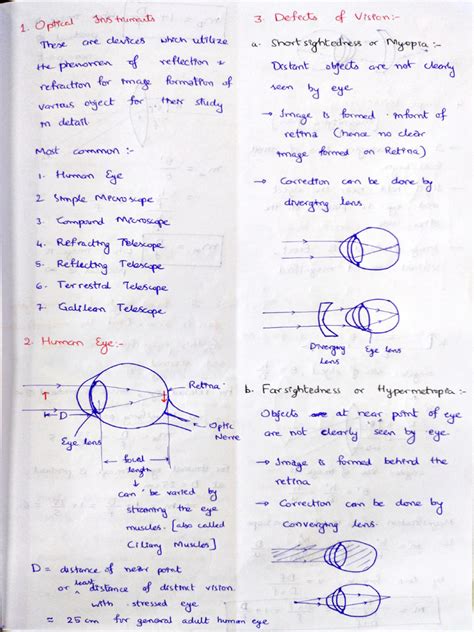 1. Optical Instruments
These are devices which utilize
the phenomen of reflection &
refraction for image formation of
various object for their study
in detail
Most common :-
1. Human Eye
2. Simple Microscope
3. Compound Microscope
4. Refracting Telescope
5. Reflecting Telescope
6. Terrestial Telescope
7. Galilean Telescope
2. Human Eye:-
Retina
D
Optic
Nerve
Eye lens
focal
length
can be varied by
straining the eye
muscles. [also called
Ciliary Muscles]
D = distance of near point
or least distance of distinct vision
with stressed eye
= 25 cm for general adult human eye
3. Defects of Vision:-
a. Shortsightedness or Myopia :-
Distant objects are not clearly
seen by eye
→ Image is formed infornt of
retina (hence no clear
image formed on Retina)
→ Correction can be done by
diverging lens
Diverging
Lens
Eye lens
b. Farsightedness or Hypermetropia :-
Objects at near point of eye
are not clearly seen by eye
→ Image is formed behind the
retina
→ Correction can be done by
Converging lens.